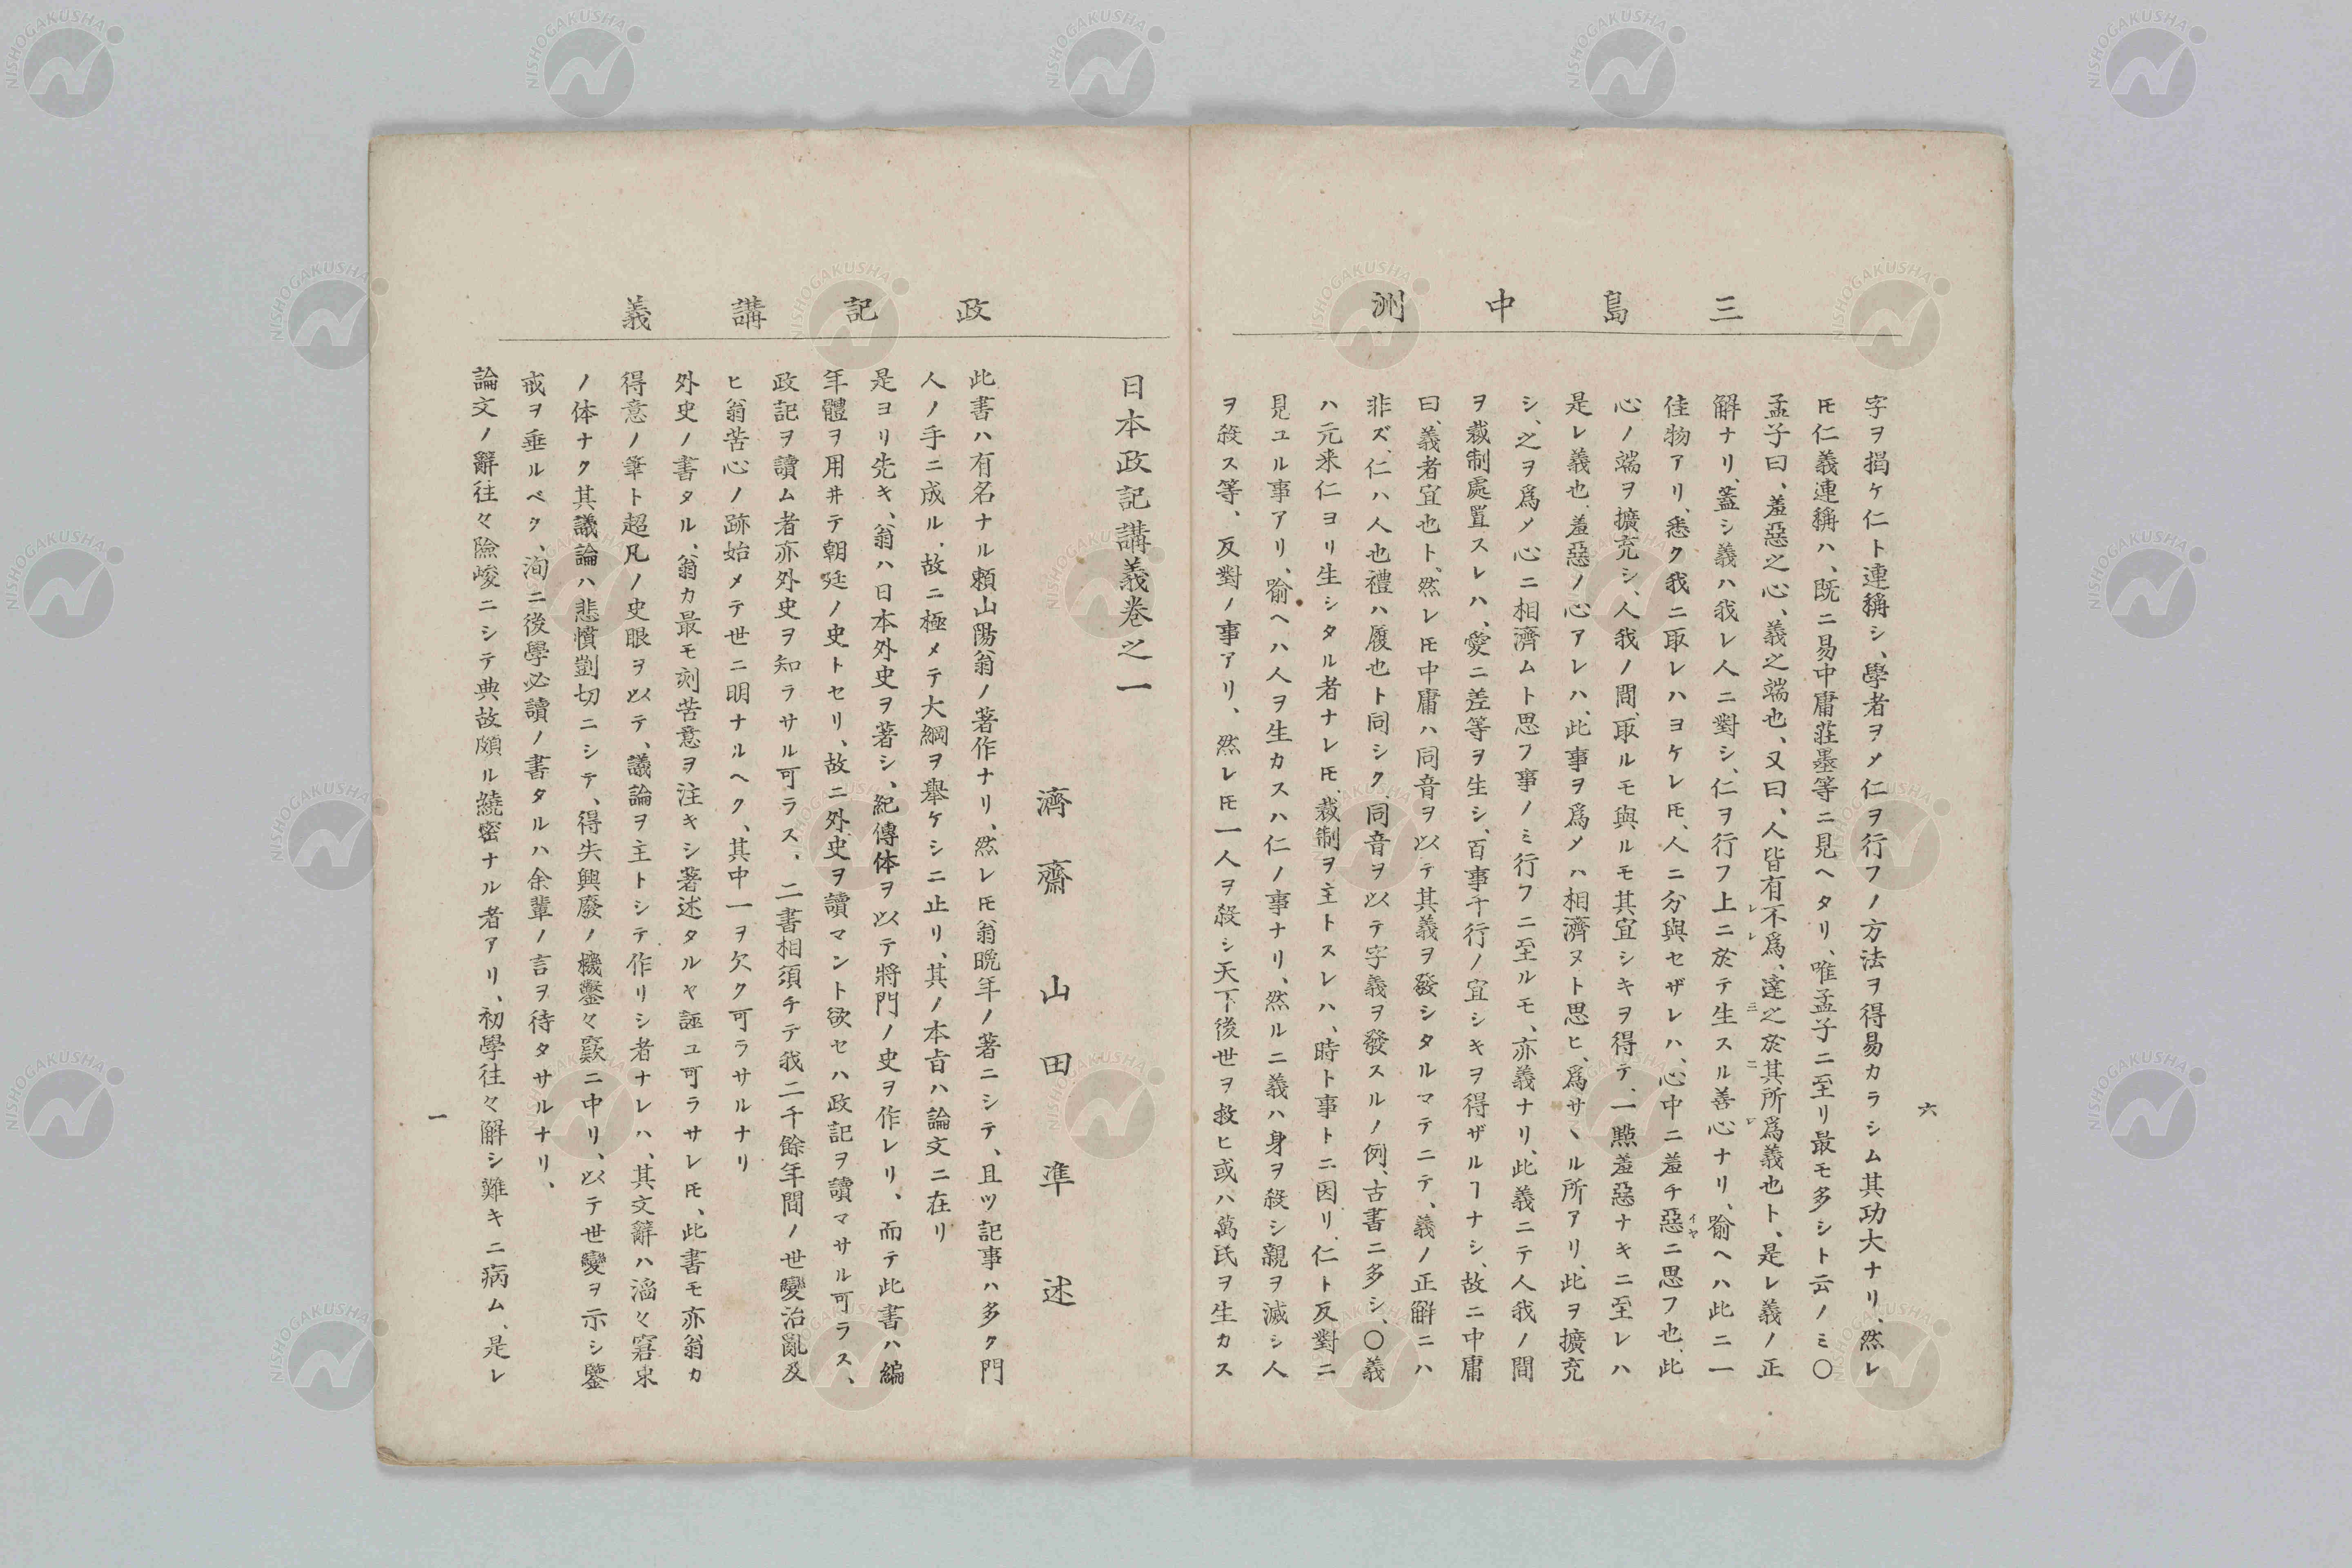 三島中洲
六
字ヲ揭ケ仁ト連稱シ、學者ヲメ仁ヲ行フノ方法ヲ得易カラシム其功大ナリ、然レ
𪜈仁義連稱ハ、既ニ易中庸莊墨等ニ見ヘタリ、唯孟子ニ至リ最モ多シト云ノミ〇
孟子曰、羞惡之心、義之端也、又曰、人皆有レ不レ爲、達三之於二其所一レ爲義也ト、是レ義ノ正
解ナリ、蓋シ義ハ我レ人ニ對シ、仁ヲ行フ上ニ於テ生スル善心ナリ、喻ヘハ此ニ一
佳物アリ、悉ク我ニ取レハヨケレ𪜈、人ニ分與セザレハ、心中ニ羞チ惡ニ思フ也、此
イヤ
心ノ端ヲ擴充シ、人我ノ間、取ルモ與ルモ其宜シキヲ得テ、一點羞惡ナキニ至レハ
是レ義也、羞惡ノ心アレハ、此事ヲ爲メハ相濟ヌト思ヒ、爲サヽル所アリ、此ヲ擴充
シ、之ヲ爲メ心ニ相濟ムト思フ事ノミ行フニ至ルモ、亦義ナリ、此義ニテ人我ノ間
ヲ裁制處置スレハ、愛ニ差等ヲ生シ、百事千行ノ宜シキヲ得ザルヿナシ、故ニ中庸
曰、義者宜也ト、然レ𪜈中庸ハ同音ヲ以テ其義ヲ發シタルマテニテ、義ノ正解ニハ
非ズ、仁ハ人也禮ハ履也ト同シク、同音ヲ以テ字義ヲ發スルノ例、古書ニ多シ、〇義
ハ元来仁ヨリ生シタル者ナレ𪜈、裁制ヲ主トスレハ、時ト事トニ因リ、仁ト反對ニ
見ユル事アリ、喻ヘハ人ヲ生カスハ仁ノ事ナリ、然ルニ義ハ身ヲ殺シ親ヲ滅シ人
ヲ殺ス等、反對ノ事アリ、然レ𪜈一人ヲ殺シ天下後世ヲ救ヒ或ハ萬民ヲ生カス
政記講義
日本政記講義卷之一
濟齋 山田準述
此書ハ有名ナル賴山陽翁ノ著作ナリ、然レ𪜈翁晩年ノ著ニシテ、且ツ記事ハ多ク門
人ノ手ニ成ル、故ニ極メテ大綱ヲ舉ケシニ止リ、其ノ本旨ハ論文ニ在リ
是ヨリ先キ、翁ハ日本外史ヲ著シ、紀傳体ヲ以テ將門ノ史ヲ作レリ、而テ此書ハ編
年體ヲ用井テ朝廷ノ史トセリ、故ニ外史ヲ讀マント欲セハ政記ヲ讀マサル可ラス、
政記ヲ讀ム者亦外史ヲ知ラサル可ラス、二書相須チテ我二千餘年間ノ世變治亂及
ヒ翁苦心ノ跡始メテ世ニ明ナルヘク、其中一ヲ欠ク可ラサルナリ
外史ノ書タル、翁カ最モ刻苦意ヲ注キシ著述タルヤ誣ユ可ラサレ𪜈、此書モ亦翁カ
得意ノ筆ト超凡ノ史眼ヲ以テ、議論ヲ主トシテ作リシ者ナレハ、其文辭ハ滔々窘束
ノ体ナク其議論ハ悲憤剴切ニシテ、得失興廢ノ機鑿々窾ニ中リ、以テ世變ヲ示シ鑒
戒ヲ垂ルベク、洵ニ後學必讀ノ書タルハ余輩ノ言ヲ待タサルナリ、
論文ノ辭往々險峻ニシテ典故頗ル繞密ナル者アリ、初學往々解シ難キニ病ム、是レ
一